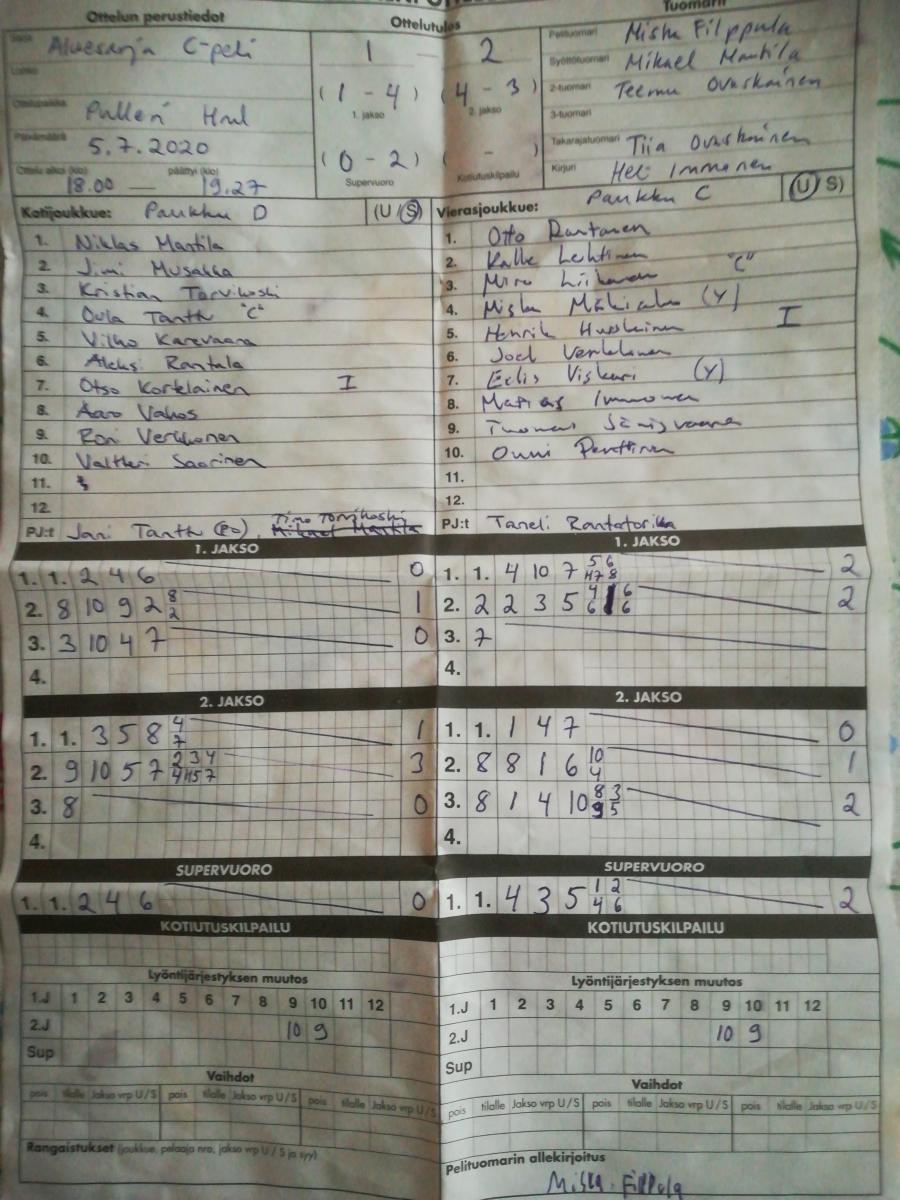 Ottelun perustiedot
Ottelutulos
Tuomarit
Aluesarja C-peli
1 — 2
Pelituomari Miska Filppula
Syöttötuomari Mikael Mantila
(1 - 4) (4 - 3)
1. jakso 2. jakso
2-tuomari Teemu Ovaskainen
Ottelupaikka Pulleri Hml
3-tuomari
Päivämäärä 5.7.2020
(0 - 2) ( - )
Takarajatuomari Tiia Ovaskainen
Ottelu alkoi (klo) 18.00 — päättyi (klo) 19.27
Supervuoro Kotiutuskilpailu
Kirjuri Heli Immonen
Kotijoukkue: Paukku D (U/S)
1. Niklas Mantila
2. Jimi Musakka
3. Kristian Torvikoski
4. Oula Tanttu "C"
5. Vilho Karevaara
6. Aleksi Rantala
7. Otso Kortelainen I
8. Aaro Vahos
9. Roni Verkkonen
10. Valtteri Saarinen
11.
12.
PJ:t Jani Tanttu (PO), Timo Torvikoski
Vierasjoukkue: Paukku C (U/S)
1. Otto Rantanen
2. Kalle Lehtinen
3. Miro Liikanen "C"
4. Miska (Y)
5. Henrik I
6. Joel
7. Eelis Viskari (Y)
8. Matias Immonen
9. Tuomas
10. Onni Penttinen
11.
12.
PJ:t Taneli
1. JAKSO
1. 1. 2 4 6 0
2. 8 10 9 2 8 2 1
3. 3 10 4 7 0
4.
1. JAKSO
1. 1. 4 10 7 5 6 7 8 2
2. 2 2 3 5 4 6 6 6 2
3. 7
4.
2. JAKSO
1. 1. 3 5 8 4 7 1
2. 9 10 5 7 2 3 4 4 5 7 3
3. 8 0
4.
2. JAKSO
1. 1. 1 4 7 0
2. 8 8 1 6 10 4 1
3. 8 1 4 10 8 3 9 5 2
4.
SUPERVUORO
1. 1. 2 4 6 0
SUPERVUORO
1. 1. 4 3 5 1 2 4 6 2
KOTIUTUSKILPAILU
KOTIUTUSKILPAILU
Lyöntijärjestyksen muutos
1.J 1 2 3 4 5 6 7 8 9 10 11 12
2.J 10 9
Sup
Lyöntijärjestyksen muutos
1.J 1 2 3 4 5 6 7 8 9 10 11 12
2.J 10 9
Sup
Vaihdot
pois tilalle Jakso vrp U/S pois tilalle Jakso vrp U/S pois tilalle Jakso vrp U/S
Vaihdot
pois tilalle Jakso vrp U/S pois tilalle Jakso vrp U/S pois tilalle Jakso vrp U/S
Rangaistukset (joukkue, pelaaja nro, jakso vrp U/S ja syy)
Pelituomarin allekirjoitus
Miska Filppula